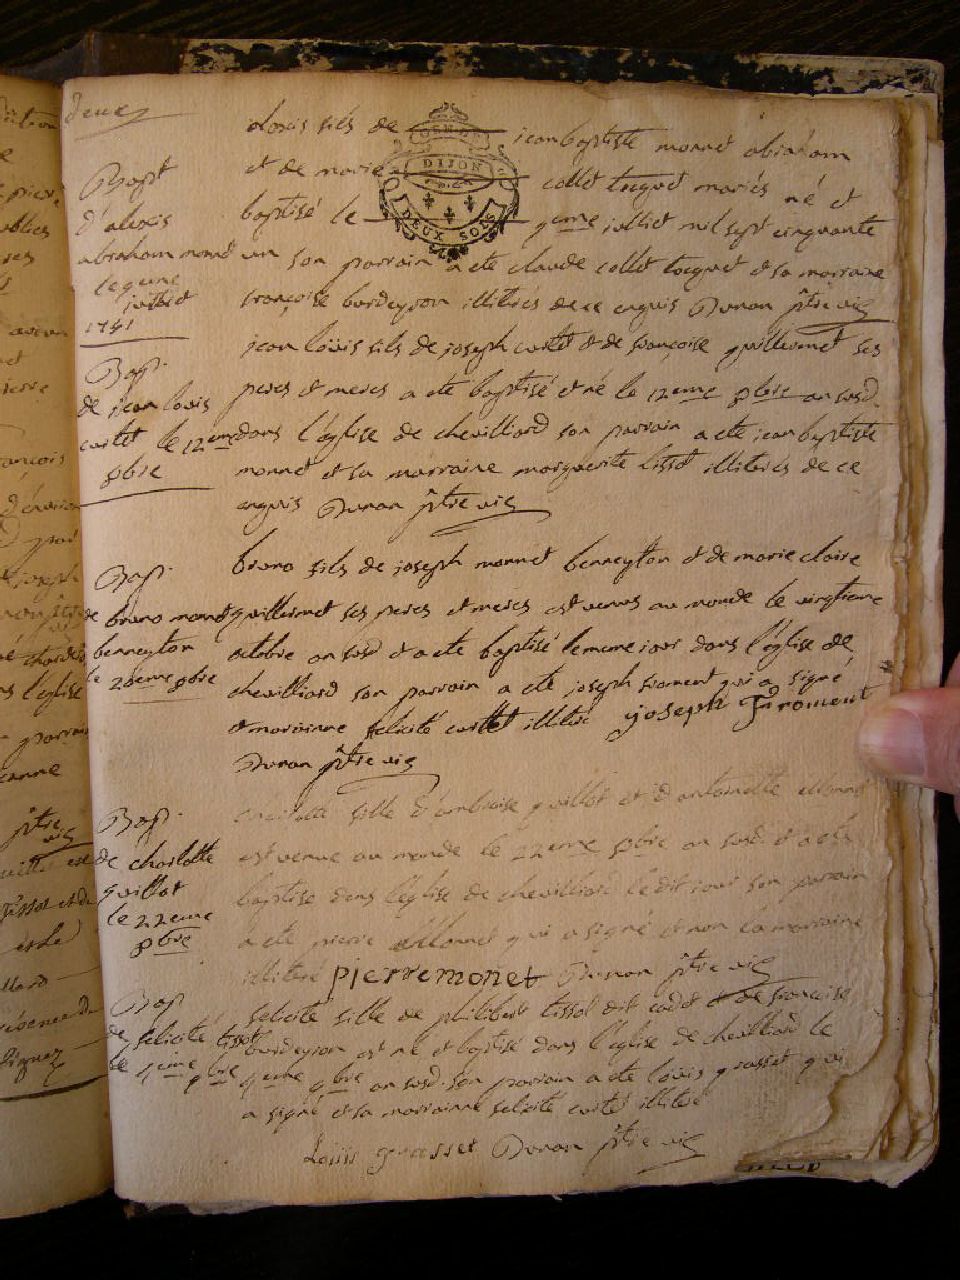 deux
Bapt
d'alexis
abraham monnet
le 9eme
juillet
1751
alexis fils de jean baptiste monnet abraham
et de marie collet tocquet mariés né et
baptisé le 9eme juillet mil sept cinquante
un son parrain a eté claude collet tocquet et sa marraine
françoise bordeyron illiterés de ce enquis Dunan ptre vic
DIJON
DEUX SOLS
Bap.
de jean louis
curtet le 12eme
8bre
jean louis fils de joseph curtet et de françoise guillermet ses
peres et meres a eté baptisé et né le 12eme 8bre an susd.
dans l'église de chevilliard son parrain a eté jean baptiste
monnet et sa marraine marguerite tissot illiterés de ce
enquis Dunan ptre vic
Bap.
de bruno monnet
benneyton
le 20eme 8bre
bruno fils de joseph monnet benneyton et de marie claire
guillermet ses peres et meres est venus au monde le vingtieme
octobre an susd et a eté baptisé le meme jour dans l'église de
chevilliard son parrain a eté joseph froment qui a signé
et marainne felicité curtet illiteré joseph Froment
Dunan ptre vic
Bap.
de charlotte
guillot
le 22eme
8bre
charlotte fille d'ambroise guillot et d'antoinette Monnet
est venue au monde le 22eme 8bre an susd. et a eté
baptisé dans l'église de chevilliard ledit jour son parrain
a eté pierre Monnet qui a signé et non la marraine
illiteré pierre monet Dunan ptre vic
Bap
de felicité tissot
le 9bre
felicité fille de philibert tissot dit cadet et de françoise
bordeyron est né et baptisé dans l'église de chevilliard le
9bre an susd. son parrain a eté louis grasset qui
a signé et sa marrainne felicité curtet illiteré
Louis grasset Dunan ptre vic